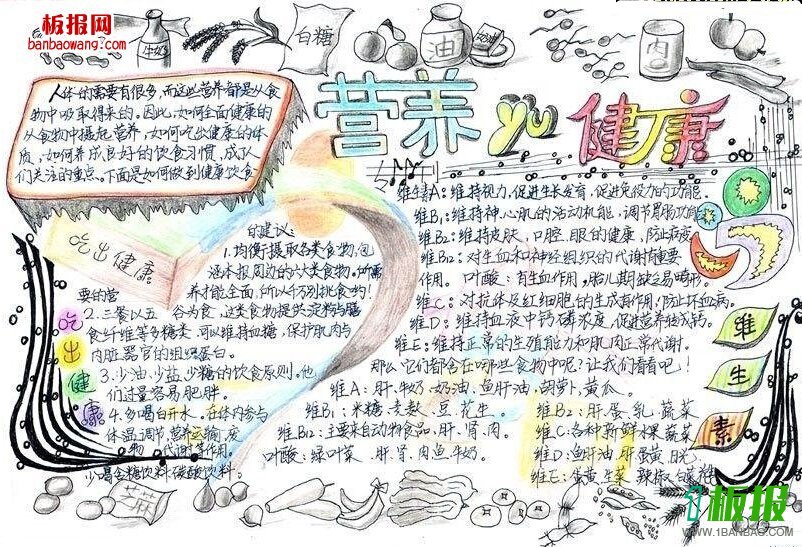 板报网
banbaowang.com
牛奶
白糖
油
奶油
肉
营养yu健康
人体的需要有很多,而这些营养都是从食
物中吸取得来的。因此,如何全面健康的
从食物中摄起营养,如何吃出健康的体
质,如何养成良好的饮食习惯,成了人
们关注的重点。下面是如何做到健康饮食
的建议:
吃出健康
1.均衡摄取各类食物,包
涵本报周边的六大类食物。所需
要的营养才能全面,所以千万别挑食物!
2.三餐以五谷为食,这类食物提供淀粉与膳
食纤维等多糖类,可以维持血糖,保护肌肉与
内脏器官的组织蛋白。
3.少油、少盐、少糖的饮食原则。他
们过量容易肥胖。
4.多喝白开水,在体内参与
体温调节,营养运输,废
物代谢等作用。
少喝含糖饮料碳酸饮料。
吃出健康
维生素A:维持视力,促进生长发育,促进免疫力的功能。
维B1:维持神心肌的活动机能,调节胃肠功能
维B2:维持皮肤、口腔、眼的健康,防止病变
维B12:对生血和神经组织的代谢有重要
作用。 叶酸:有生血作用,胎儿期缺乏易畸形。
维C:对抗体及红细胞的生成有作用,防止坏血病。
维D:维持血液中钙、磷浓度,促进营养转成钙。
维E:维持正常的生殖能力和肌肉正常代谢。
那么它们都含在哪些食物中呢?让我们看看吧!
维A:肝、牛奶、奶油、鱼肝油、胡萝卜、黄瓜。
维B1:米糖、麦麸、豆、花生。 维B2:肝、蛋、乳、蔬菜
维B12:主要来自动物食品,肝、肾、肉。 维C:各种新鲜水果、蔬菜
叶酸:绿叶菜、肝、肾、肉、鱼、牛奶。 维D:鱼肝油、肝、蛋黄、
维E:蛋黄、生菜、辣椒、
维生素
芝麻
1板报
WWW.1BANBAO.COM